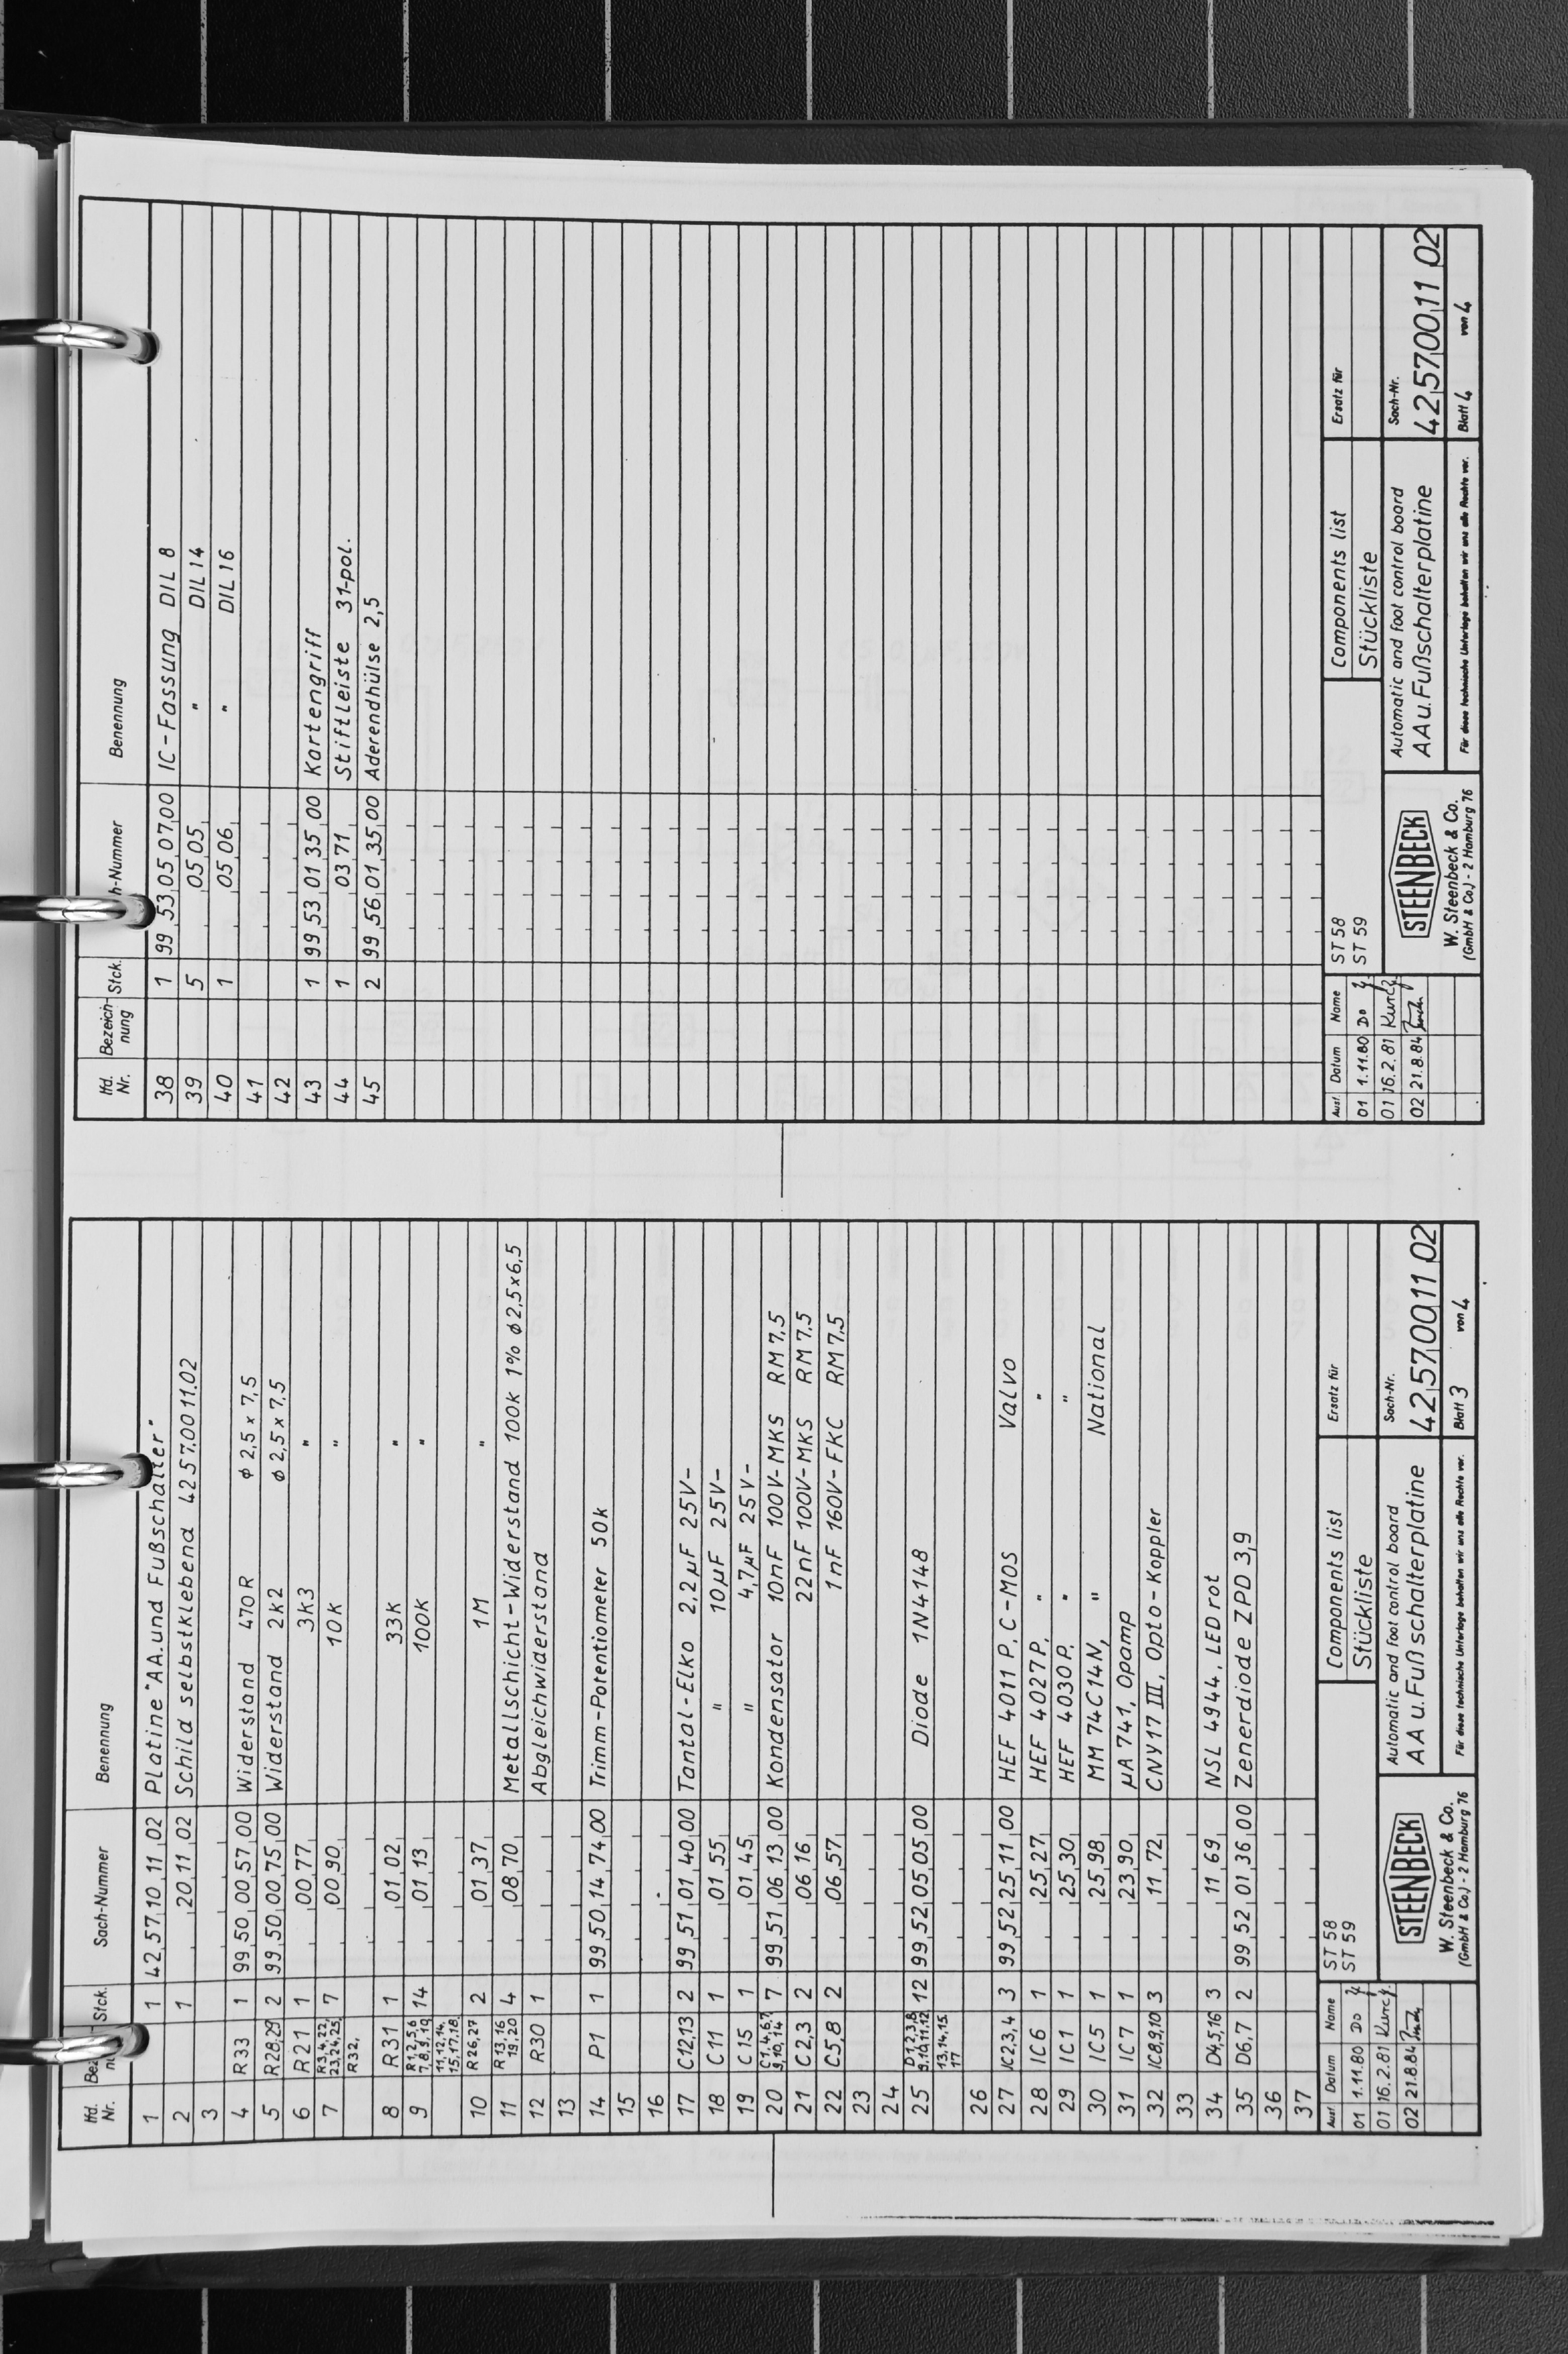 lfd. Nr. Stck. Sach-Nummer Benennung
1 1 42,57,10,11,02 Platine "AA.und Fußschalter"
2 1 ,20,11,02 Schild selbstklebend 42 57.00 11.02
3
4 R33 1 99,50,00,57,00 Widerstand 470R ϕ 2,5 x 7,5
5 R28,29 2 99,50,00,75,00 Widerstand 2k2 ϕ 2,5 x 7,5
6 R21 1 ,00,77 3k3 "
7 R3,4,22, 7 ,00,90 10k "
23,24,25,
R32,
8 R31 1 ,01,02 33k "
9 R1,2,5,6 14 ,01,13 100k "
7,8,9,10
11,12,14,
15,17,18,
10 R26,27 2 ,01,37 1M "
11 R13,16 4 ,08,70 Metallschicht-Widerstand 100k 1% ϕ 2,5x6,5
19,20
12 R30 1 Abgleichwiderstand
13
14 P1 1 99,50,14,74,00 Trimm-Potentiometer 50k
15
16
17 C12,13 2 99,51,01,40,00 Tantal-Elko 2,2µF 25V-
18 C11 1 ,01,55 " 10µF 25V-
19 C15 1 ,01,45 " 4,7µF 25V-
20 C1,4,6,7 7 99,51,06,13,00 Kondensator 10nF 100V-MKS RM7,5
9,10,14
21 C2,3 2 ,06,16 22nF 100V-MKS RM7,5
22 C5,8 2 ,06,57 1nF 160V-FKC RM7,5
23
24
25 D1,2,3,8 12 99,52,05,05,00 Diode 1N4148
9,10,11,12
13,14,15
17
26
27 IC2,3,4 3 99,52,25,11,00 HEF 4011 P, C-MOS Valvo
28 IC6 1 ,25,27 HEF 4027P, " "
29 IC1 1 ,25,30 HEF 4030P, " "
30 IC5 1 ,25,98 MM 74C14N, " National
31 IC7 1 ,23,90 µA 741, Opamp
32 IC8,9,10 3 ,11,72 CNY17 III, Opto-Koppler
33
34 D4,5,16 3 ,11,69 NSL 4944, LED rot
35 D6,7 2 99,52,01,36,00 Zenerdiode ZPD 3,9
36
37
Ausf. Datum Name
01 1.11.80 Do
01 16.2.81 Kuncz
02 21.8.84
ST 58
ST 59
Components list
Stückliste
Ersatz für
STEENBECK
W. Steenbeck & Co.
(GmbH & Co.) - 2 Hamburg 76
Automatic and foot control board
AA u. Fußschalterplatine
Sach-Nr.
42,57,00,11 02
Für diese technische Unterlage behalten wir uns alle Rechte vor.
Blatt 3 von 4
lfd. Nr. Bezeich-nung Stck. h-Nummer Benennung
38 1 99,53,05,07,00 IC-Fassung DIL 8
39 5 ,05,05 " DIL 14
40 1 ,05,06 " DIL 16
41
42
43 1 99,53,01,35,00 Kartengriff
44 1 ,03,71 Stiftleiste 31-pol.
45 2 99,56,01,35,00 Aderendhülse 2,5
Ausf. Datum Name
01 1.11.80 Do
01 16.2.81 Kuncz
02 21.8.84
ST 58
ST 59
Components list
Stückliste
Ersatz für
STEENBECK
W. Steenbeck & Co.
(GmbH & Co.) - 2 Hamburg 76
Automatic and foot control board
AA u. Fußschalterplatine
Sach-Nr.
42,57,00,11 02
Für diese technische Unterlage behalten wir uns alle Rechte vor.
Blatt 4 von 4